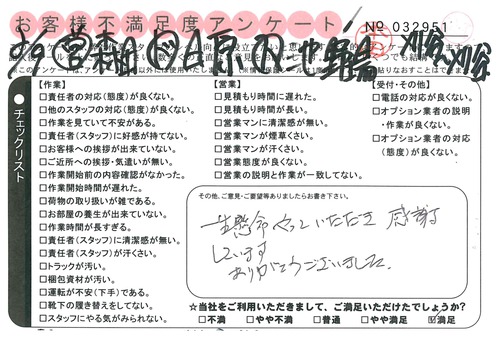 お客様不満足度アンケート
No 032951
チェックリスト
【作業】
□責任者の対応(態度)が良くない。
□他のスタッフの対応(態度)が良くない。
□作業を見ていて不安がある。
□責任者(スタッフ)に好感が持てない。
□お客様への挨拶が出来ていない。
□ご近所への挨拶・気遣いが無い。
□作業開始前の内容確認がなかった。
□作業開始時間が遅れた。
□荷物の取り扱いが雑である。
□お部屋の養生が出来ていない。
□作業時間が長すぎる。
□責任者(スタッフ)に清潔感が無い。
□責任者(スタッフ)が汗くさい。
□トラックが汚い。
□梱包資材が汚い。
□運転が不安(下手)である。
□靴下の履き替えをしてない。
□スタッフにやる気がみられない。
【営業】
□見積もり時間に遅れた。
□見積もり時間が長い。
□営業マンに清潔感が無い。
□営業マンが煙草くさい。
□営業マンが汗くさい。
□営業態度が良くない。
□営業の説明と作業が一致してない。
【受付・その他】
□電話の対応が良くない。
□オプション業者の説明
・作業が良くない。
□オプション業者の対応
(態度)が良くない。
その他、ご意見・ご要望等ありましたらお書き下さい。
一生懸命やっていただき 感謝
しています
ありがとうございました。
☆当社をご利用いただきまして、ご満足いただけたでしょうか?
□不満 □やや不満 □普通 □やや満足 ☑満足